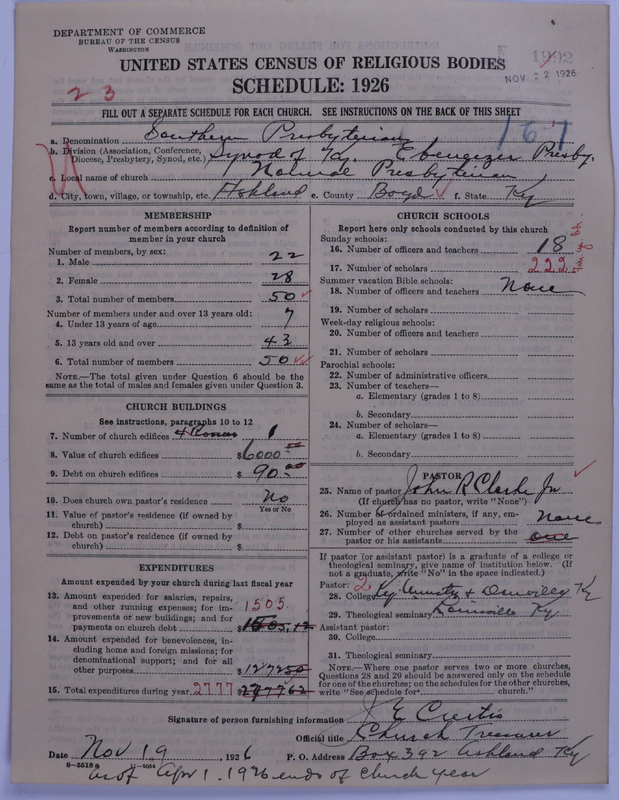 DEPARTMENT OF COMMERCE
BUREAU OF THE CENSUS
WASHINGTON
1992
NOV 22 1926
UNITED STATES CENSUS OF RELIGIOUS BODIES
SCHEDULE: 1926
2 3
FILL OUT A SEPARATE SCHEDULE FOR EACH CHURCH. SEE INSTRUCTIONS ON THE BACK OF THIS SHEET
167
a. Denomination Southern Presbyterian
b. Division (Association, Conference, Diocese, Presbytery, Synod, etc.) Synod of Ky. Ebenezer Presby.
c. Local name of church Presbyterian
d. City, town, village, or township, etc. Ashland e. County Boyd f. State Ky
MEMBERSHIP
Report number of members according to definition of
member in your church
Number of members, by sex:
1. Male 22
2. Female 28
3. Total number of members 50
Number of members under and over 13 years old:
4. Under 13 years of age 7
5. 13 years old and over 43
6. Total number of members 50
NOTE.—The total given under Question 6 should be the
same as the total of males and females given under Question 3.
CHURCH BUILDINGS
See instructions, paragraphs 10 to 12
7. Number of church edifices 4 Rooms 1
8. Value of church edifices $6000.00
9. Debt on church edifices $90.00
10. Does church own pastor's residence No
Yes or No
11. Value of pastor's residence (if owned by
church) $
12. Debt on pastor's residence (if owned by
church) $
EXPENDITURES
Amount expended by your church during last fiscal year
13. Amount expended for salaries, repairs,
and other running expenses; for im-
provements or new buildings; and for
payments on church debt $1505.12
1505.
14. Amount expended for benevolences, in-
cluding home and foreign missions; for
denominational support; and for all
other purposes $127250
15. Total expenditures during year 2777 $277762
CHURCH SCHOOLS
Report here only schools conducted by this church
Sunday schools:
16. Number of officers and teachers 18
17. Number of scholars 222
Summer vacation Bible schools:
18. Number of officers and teachers None
19. Number of scholars
Week-day religious schools:
20. Number of officers and teachers
21. Number of scholars
Parochial schools:
22. Number of administrative officers
23. Number of teachers—
a. Elementary (grades 1 to 8)
b. Secondary
24. Number of scholars—
a. Elementary (grades 1 to 8)
b. Secondary
PASTOR
25. Name of pastor John R Clarke Jr
(If church has no pastor, write "None")
26. Number of ordained ministers, if any, em-
ployed as assistant pastors None
27. Number of other churches served by the
pastor or his assistants one
If pastor (or assistant pastor) is a graduate of a college or
theological seminary, give name of institution below. (If
not a graduate, write "No" in the space indicated.)
Pastor: 2
28. College Ky & Danville Ky
29. Theological seminary Louisville Ky
Assistant pastor:
30. College
31. Theological seminary
NOTE.—Where one pastor serves two or more churches,
Questions 28 and 29 should be answered only on the schedule
for one of the churches; on the schedules for the other churches,
write "See schedule for church."
Signature of person furnishing information J E Curtis
Official title Church Treasurer
Date Nov 19, 1926 P. O. Address Box 392 Ashland Ky
8—5518a 11—9054
as of Apr 1. 1926 ends of church year